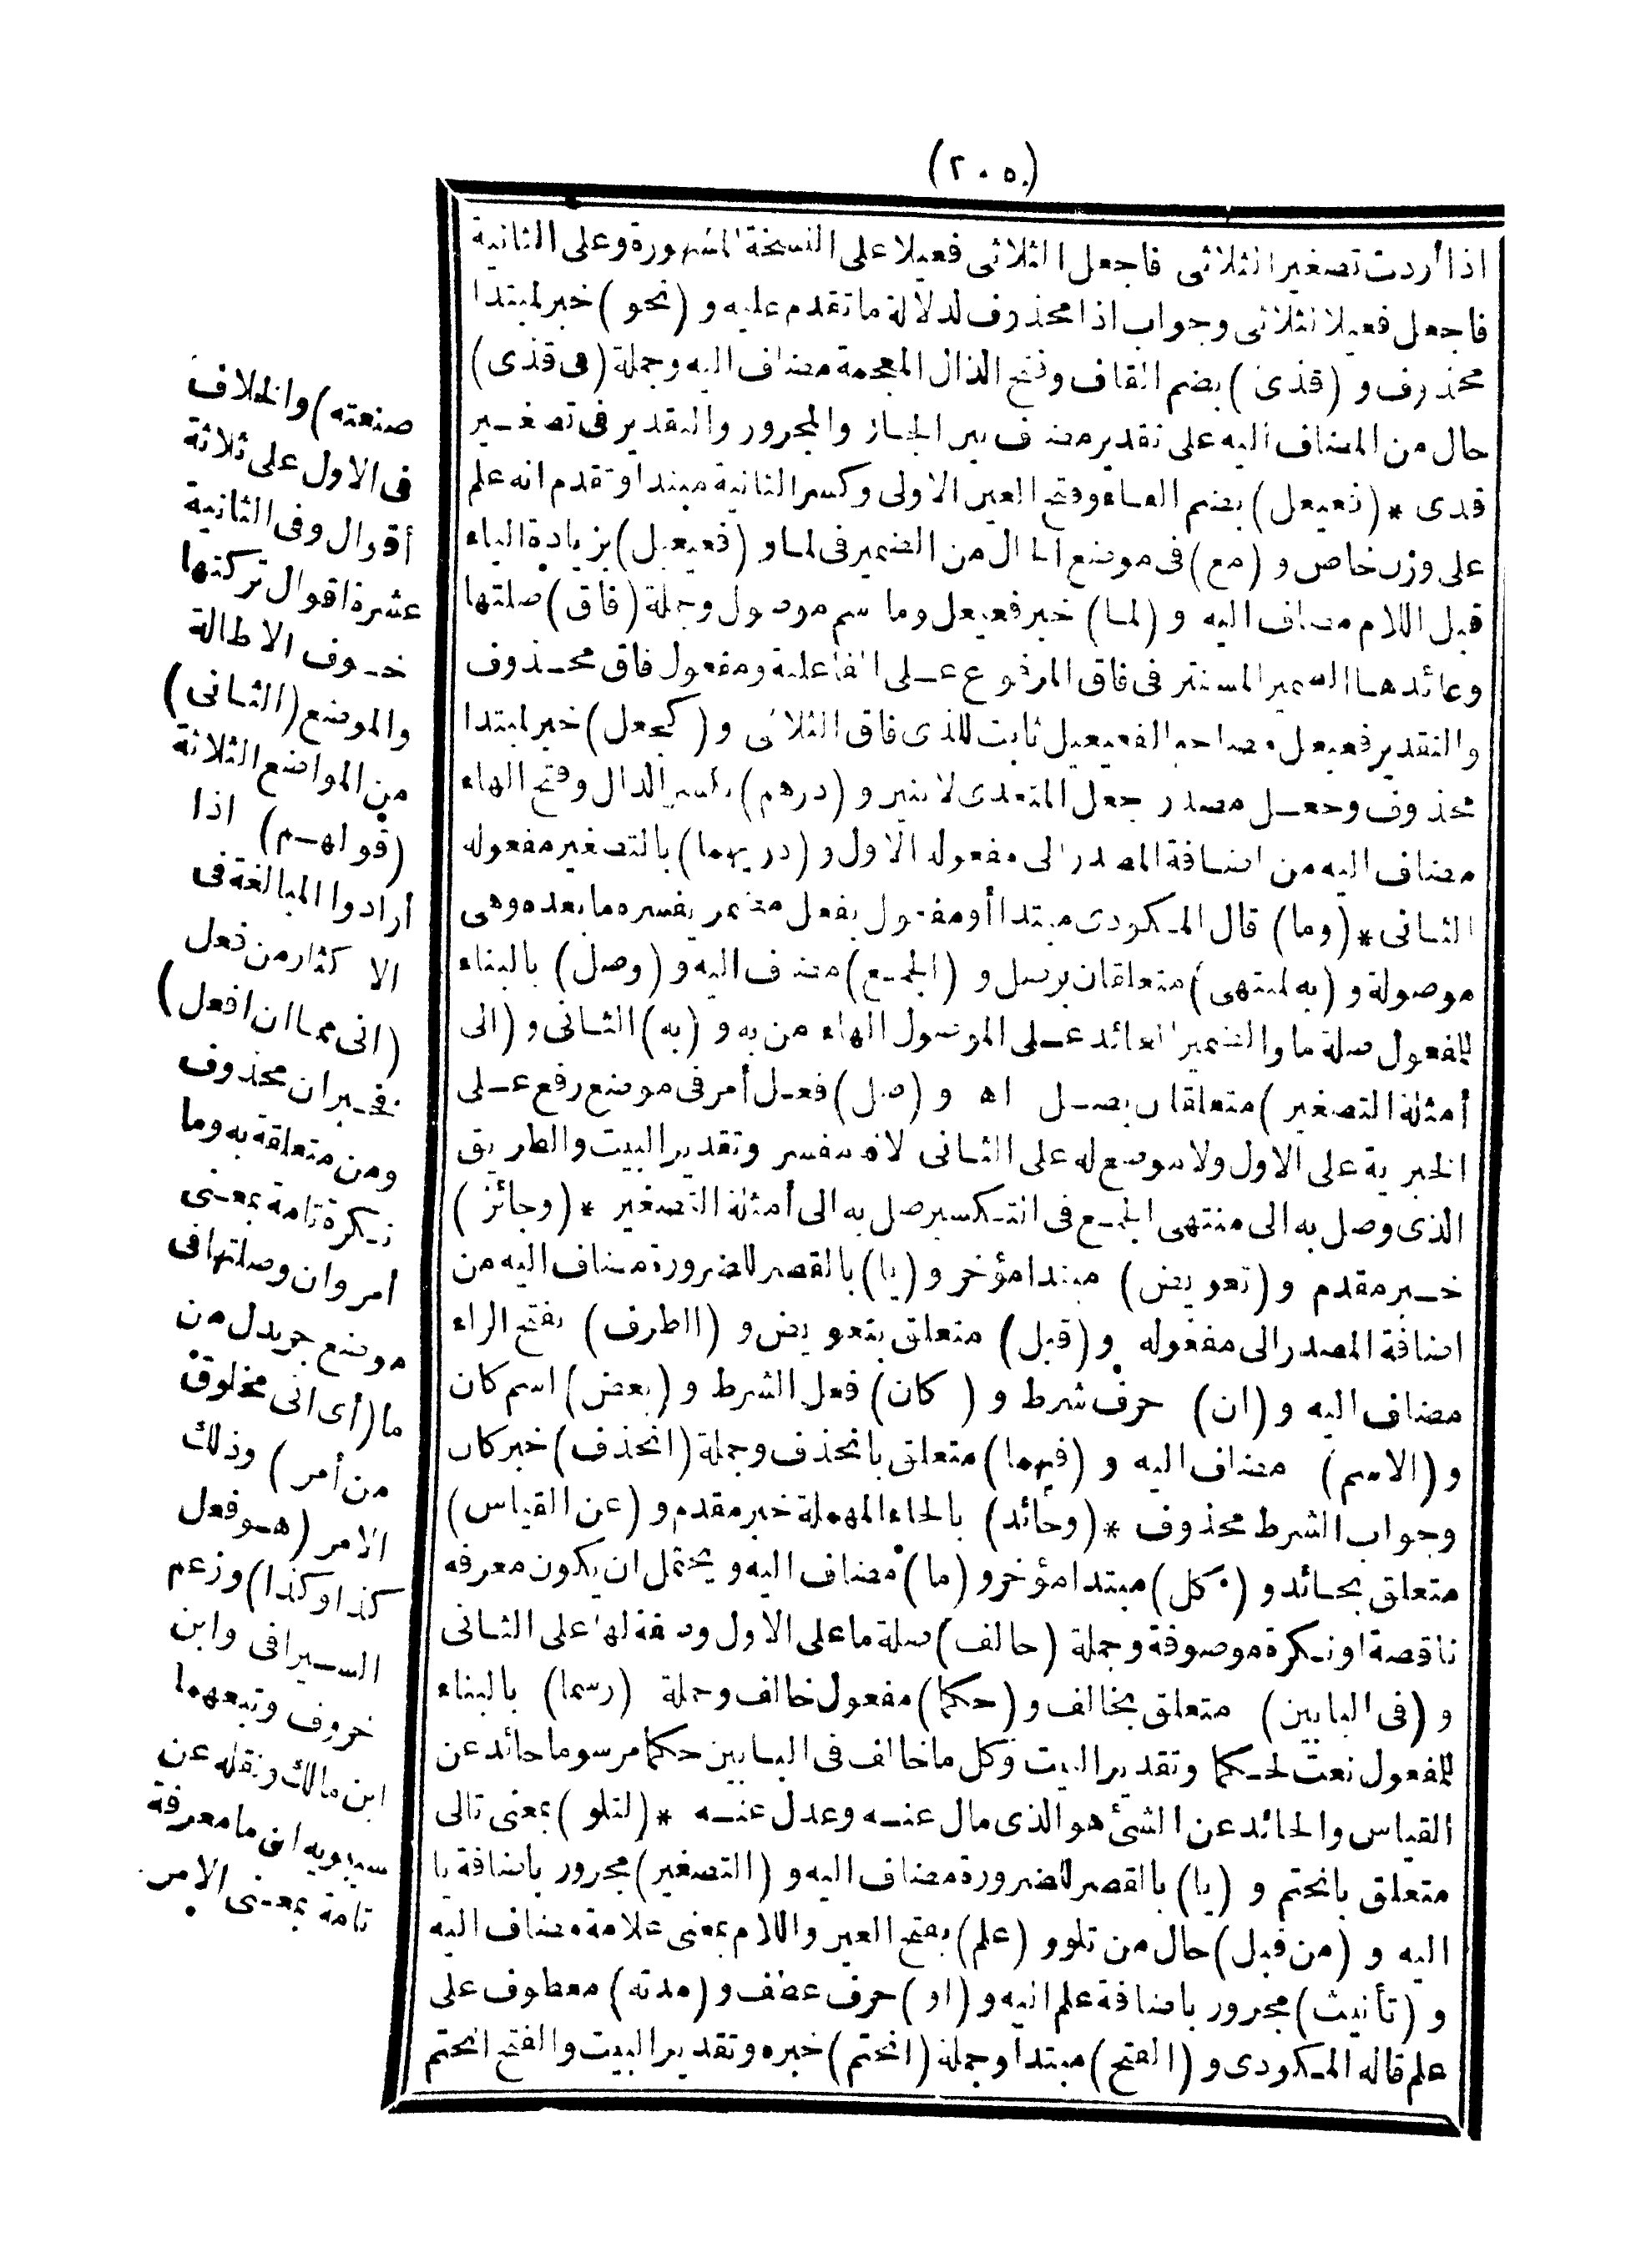 (٢٠٥)
اذا أردت تصغير الثلاثى فاجعل الثلاثى فعيلا على النسخة المشهورة وعلى الثانية
فاجعل فعيلا لثلاثى وجواب اذا محذوف لدلالة ما تقدم عليه و (نحو) خبر لمبتدا
محذوف و (قذى) بضم القاف وفتح الذال المعجمة مضاف اليه وجملة (فى قذى)
حال من المضاف اليه على تقدير مضاف بين الجار والمجرور والتقدير فى تصغير
قذى * (فعيعل) بضم الفاء وفتح العين الاولى وكسر الثانية مبتدا وتقدم انه علم
على وزن خاص و (مع) فى موضع الحال من الضمير فى لما و (فعيعيل) بزيادة الياء
قبل اللام مضاف اليه و (لما) خبر فعيعل وما اسم موصول وجملة (فاق) صلتها
وعائدها الضمير المستتر فى فاق المرفوع على الفاعلية ومفعول فاق محذوف
والتقدير فعيعل مصاحب الفعيعيل ثابت للذى فاق الثلاثى و (كجعل) خبر لمبتدا
محذوف وجعل مصدر جعل المتعدى لاثنين و (درهم) بكسر الدال وفتح الهاء
مضاف اليه من اضافة المصدر الى مفعوله الاول و (دريهما) بالتصغير مفعوله
الثانى * (وما) قال المكودى مبتدا أو مفعول بفعل مضمر يفسره ما بعده وهى
موصولة و (به لمنتهى) متعلقان بوصل و (الجمع) مضاف اليه و (وصل) بالبناء
للمفعول صلة ما والضمير العائد على الموصول الهاء من به و (به) الثانى و (الى
أمثلة التصغير) متعلقان بصل اه و (صل) فعل أمر فى موضع رفع على
الخبرية على الاول ولا موضع له على الثانى لانه مفسر وتقدير البيت والطريق
الذى وصل به الى منتهى الجمع فى التكسير صل به الى أمثلة التصغير * (وجائز)
خبر مقدم و (تعويض) مبتدا مؤخر و (يا) بالقصر للضرورة مضاف اليه من
اضافة المصدر الى مفعوله و (قبل) متعلق بتعويض و (الطرف) بفتح الراء
مضاف اليه و (ان) حرف شرط و (كان) فعل الشرط و (بعض) اسم كان
و (الاسم) مضاف اليه و (فيهما) متعلق بانحذف وجملة (انحذف) خبر كان
وجواب الشرط محذوف * (وحائد) بالحاء المهملة خبر مقدم و (عن القياس)
متعلق بحائد و (كل) مبتدا مؤخر و (ما) مضاف اليه ويحتمل ان يكون معرفه
ناقصة او نكرة موصوفة وجملة (خالف) صلة ما على الاول وصفة لها على الثانى
و (فى البابين) متعلق بخالف و (حكما) مفعول خالف وجملة (رسما) بالبناء
للمفعول نعت لحكما وتقدير البيت وكل ما خالف فى البابين حكما مرسوما حائد عن
القياس والحائد عن الشئ هو الذى مال عنه وعدل عنه * (لتلو) بمعنى تالى
متعلق بانحتم و (يا) بالقصر للضرورة مضاف اليه و (التصغير) مجرور باضافة يا
اليه و (من قبل) حال من تلو و (علم) بفتح العين واللام بمعنى علامة مضاف اليه
و (تأنيث) مجرور باضافة علم اليه و (او) حرف عطف و (مدته) معطوف على
علم قاله المكودى و (الفتح) مبتدا وجملة (انحتم) خبره وتقدير البيت والفتح انحتم
صنعته) والخلاف
فى الاول على ثلاثة
أقوال وفى الثانية
عشرة اقوال تركتها
خوف الاطالة
والموضع (الثانى)
من المواضع الثلاثة
(قولهم) اذا
أرادوا المبالغة فى
الاكثار من فعل
(انى مما ان افعل)
فخبر ان محذوف
ومن متعلقة به وما
نكرة تامة بمعنى
امر وان وصلتها فى
موضع جر بدل من
ما (أى انى مخلوق
من أمر) وذلك
الامر (هو فعل
كذا وكذا) وزعم
السيرافى وابن
خروف وتبعهما
ابن مالك ونقله عن
سيبويه ان ما معرفة
تامة بمعنى الامر